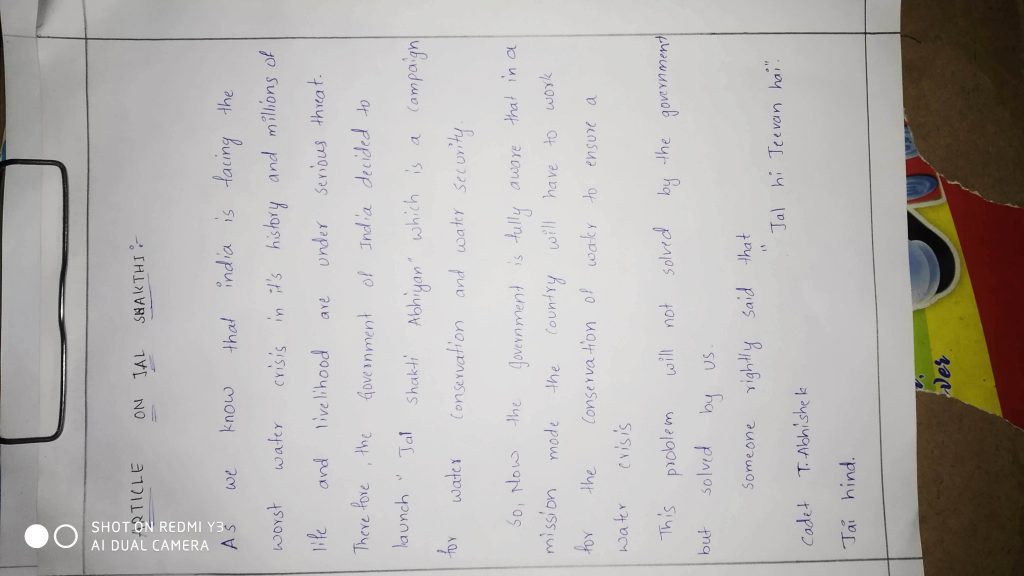 ARTICLE ON JAL SHAKTHI :-
As we know that india is facing the
worst water crisis in it's history and millions of
life and livelihood are under serious threat.
Therefore, the Government of India decided to
launch " Jal Shakti Abhiyan" which is a campaign
for water conservation and water security.
So, Now the government is fully aware that in a
mission mode the country will have to work
for the conservation of water to ensure a
water crisis
This problem will not solved by the government
but solved by us.
someone rightly said that
" Jal hi Jeevan hai".
Cadet T. Abhishek
Jai hind.
SHOT ON REDMI Y3
AI DUAL CAMERA